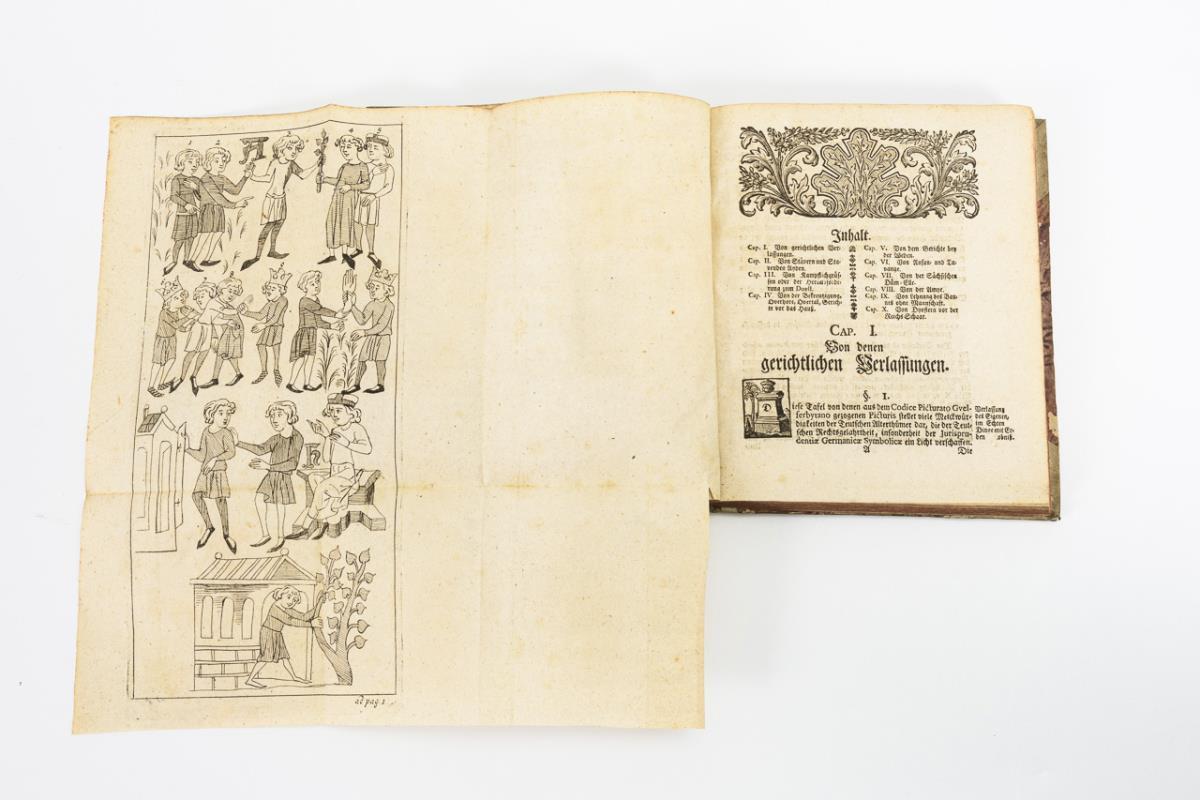 ad pag 1
Inhalt.
Cap. I. Von gerichtlichen Ver-
lassungen.
Cap. II. Von Stävern und Sta-
vendes Ayden.
Cap. III. Von Kampflichgrüs-
sen oder der
rung zum Duell.
Cap. IV Von der Bekreutzigung,
Gerich-
te vor das Hauß.
Cap. V. Von dem Gerichte bey
der Weden.
Cap. VI. Von und
Cap. VII. Von der Sächsischen
Düm-Elle.
Cap. VIII. Von der
Cap. IX. Von Lehnung des
nes ohne Mannschafft.
Cap. X. Von vor der
Reichs Schaar.
CAP. I.
Von denen
gerichtlichen Verlassungen.
§. 1.
Diese Tafel von denen aus dem Codice Picturato Gvel-
ferbytano gezogenen Picturis stellet viele Merckwür-
digkeiten der Teutschen Alterthümer dar, die der Teut-
schen Rechtsgelahrtheit, insonderheit der Jurispru-
dentiæ Germanicæ Symbolicæ ein Licht verschaffen.
Verlassung
des Eigenen,
im Echten
Dinge mit
den
A Die